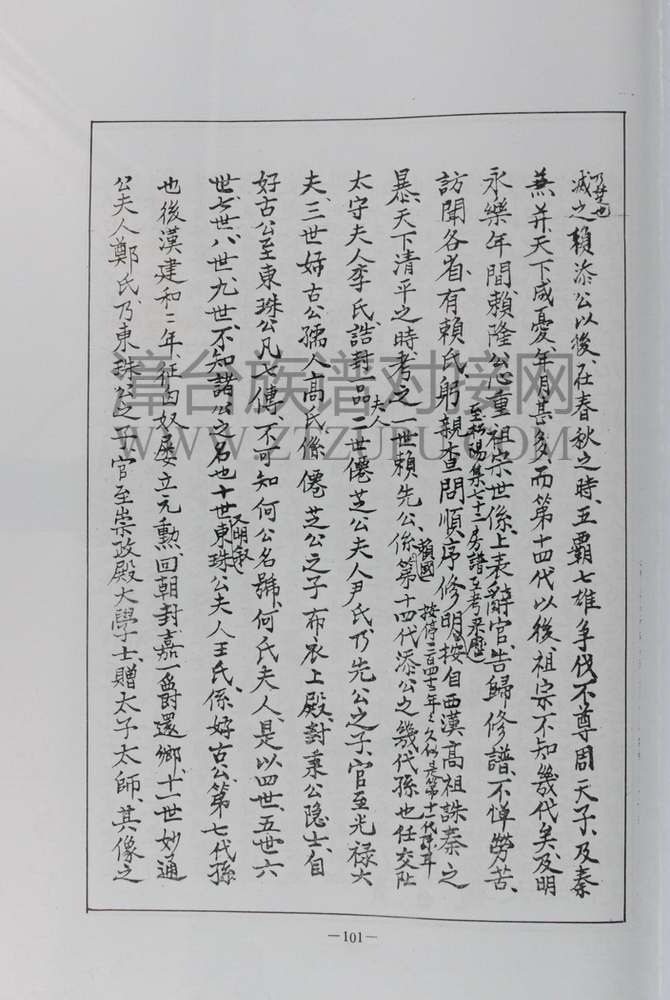 滅之賴添公以後、在春秋之時、五霸七雄爭伐、不尊周天子、及秦
兼并、天下咸憂、年月甚多、而第十四代以後、祖宗不知幾代矣、及明
永樂年間賴隆公、心重祖宗世係、上表辭官、告歸修譜、不憚勞苦、
至松陽集七十二房譜互考來歷
訪聞各省、有賴氏、躬親查問順序修明、按自西漢高祖誅秦之
暴、天下清平之時、考之一世賴先公、係賴國第十四代添公之幾代孫也、任交趾
太守、夫人李氏、誥封一品夫人、二世僊芝公夫人尹氏、乃先公之子、官至光祿大
夫、三世好古公、孺人高氏、係僊芝公之子、布衣上殿、對秉公隐士、自
好古公至東珠公凡七傳、不可知何公名號、何氏夫人、是以四世、五世、六
世、七世、八世、九世、不知諸公之名也、十世東珠公夫人王氏、係好古公第七代孫
又明爭
也、後漢建和二年、征匈奴屡立元勳、回朝封嘉一爵還鄉、十一世妙通
公夫人鄭氏、乃東珠公之子、官至崇政殿大學士、贈太子太師、其像之
漳台族谱对接网
WWW.ZTZUPU.COM
—101—